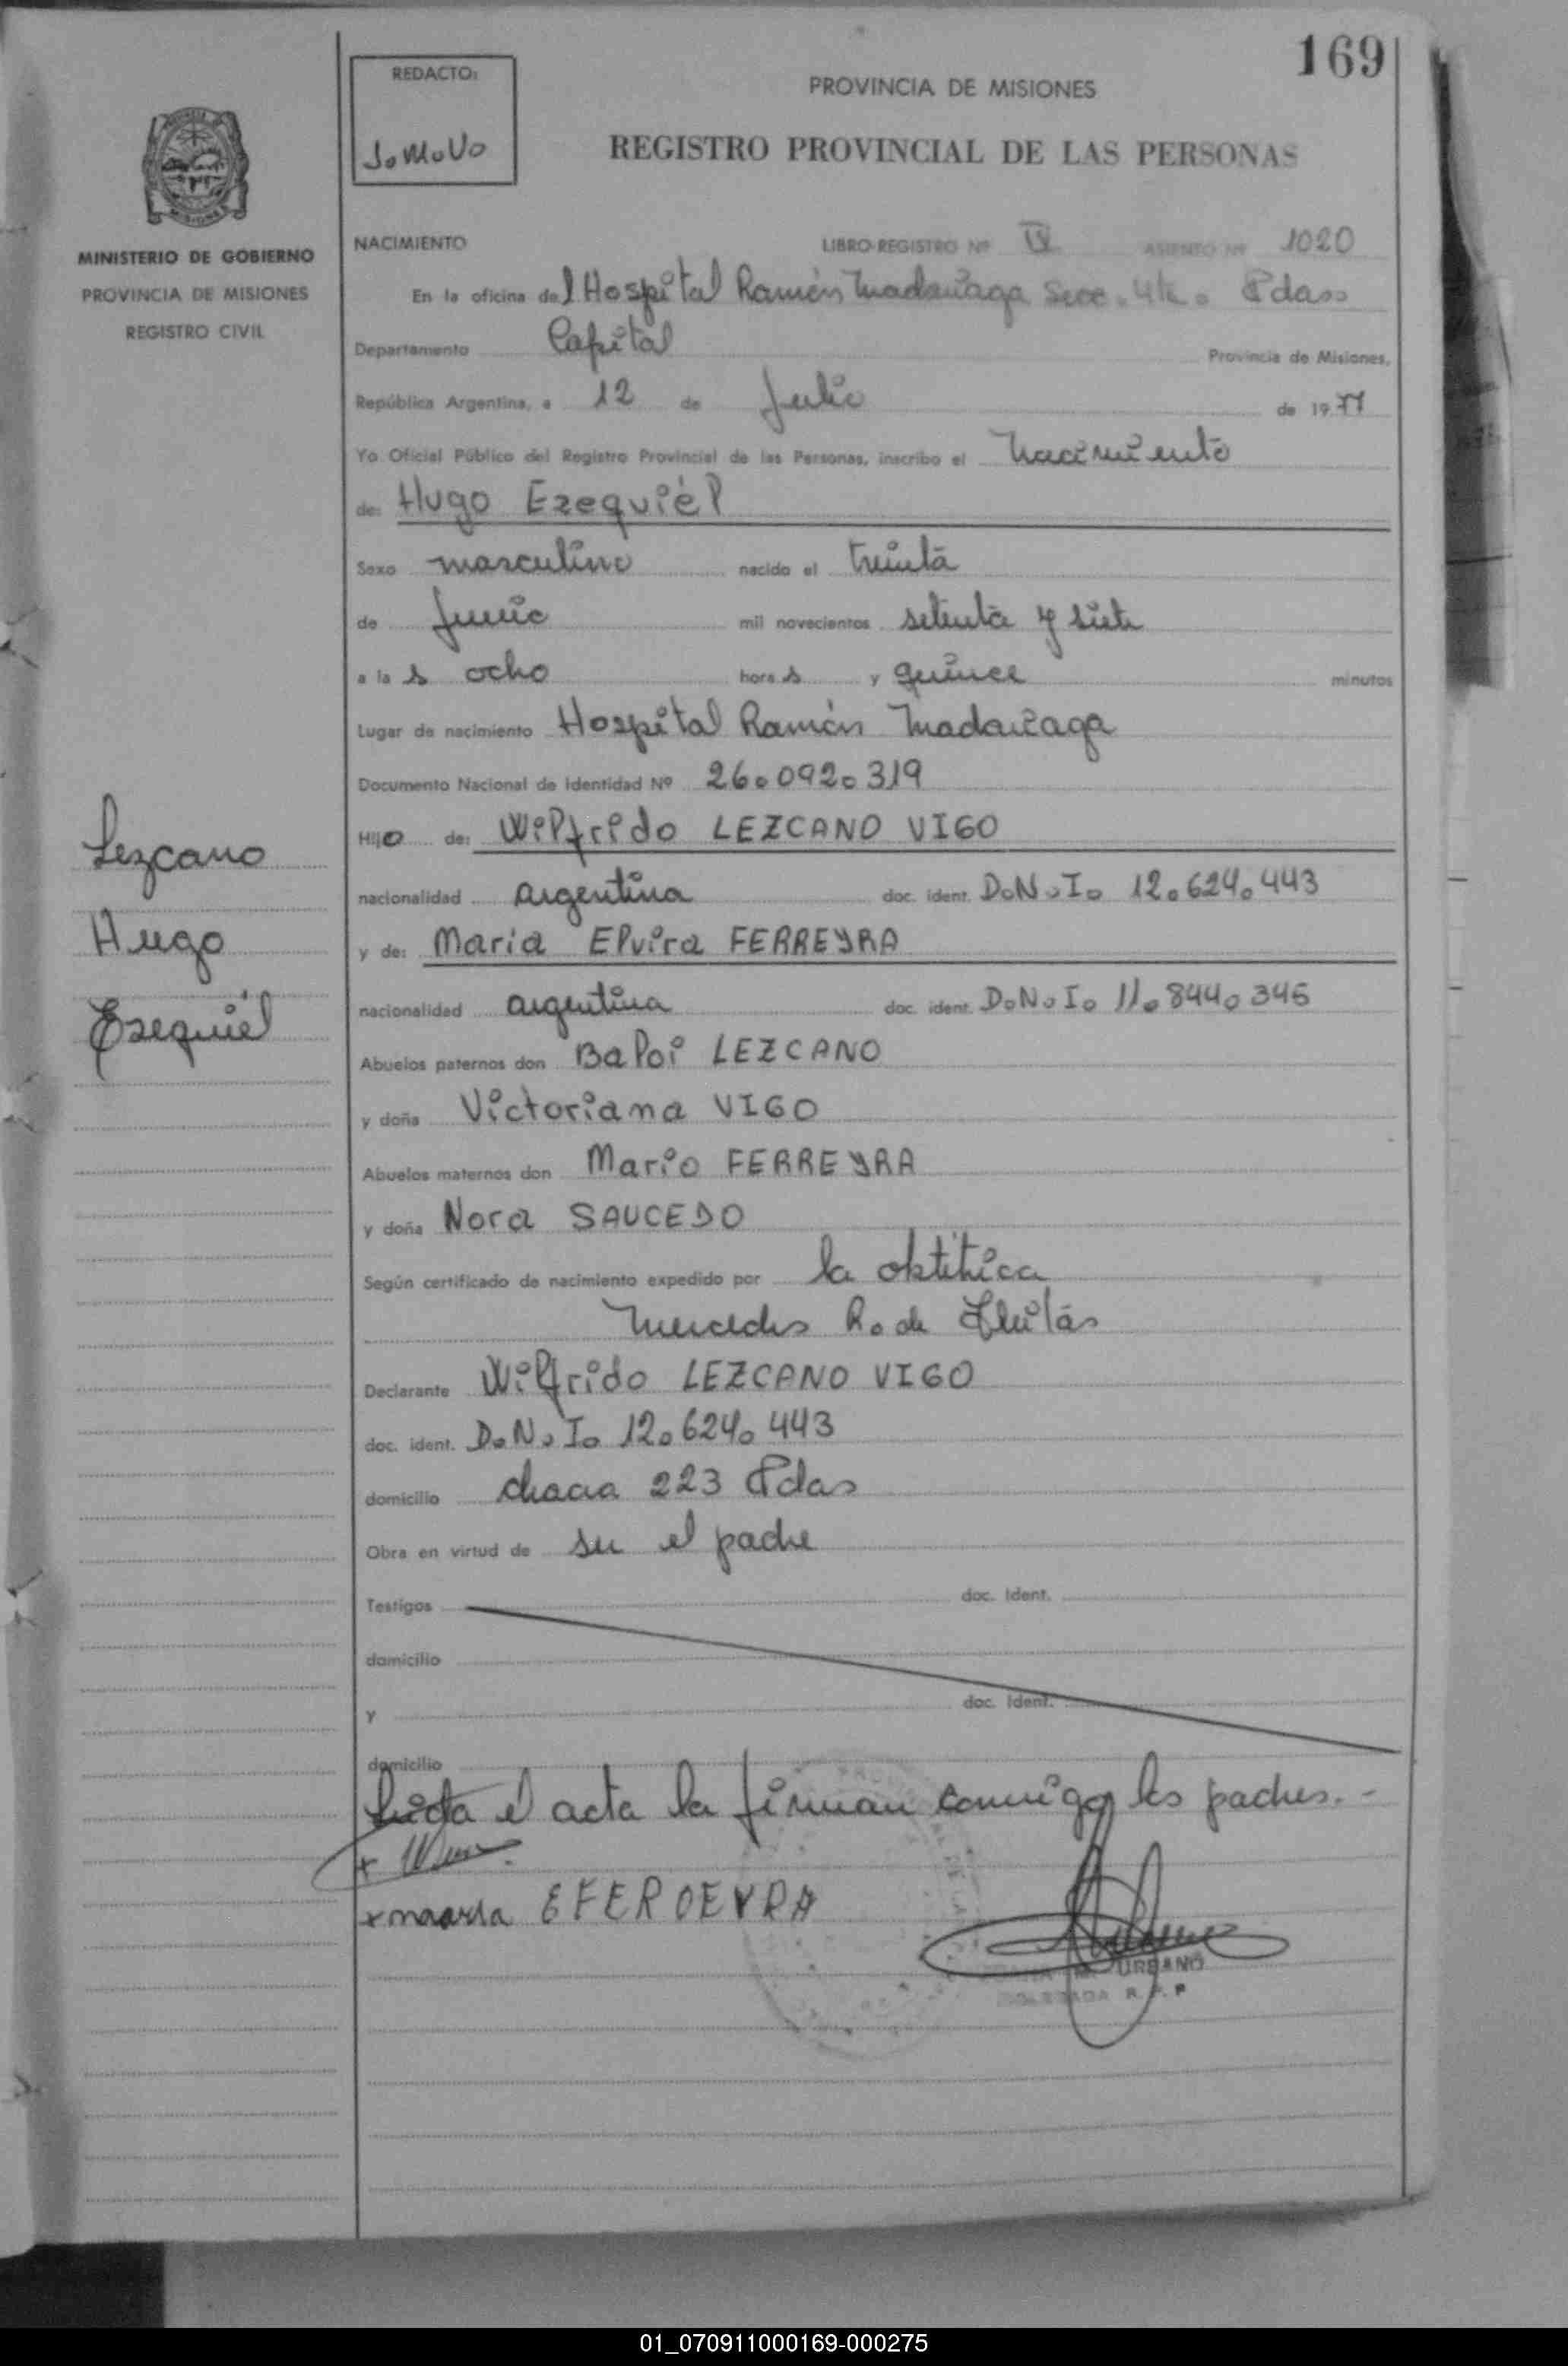 169
REDACTO:
J.M.V.
PROVINCIA DE MISIONES
REGISTRO PROVINCIAL DE LAS PERSONAS
MINISTERIO DE GOBIERNO
PROVINCIA DE MISIONES
REGISTRO CIVIL
NACIMIENTO LIBRO-REGISTRO Nº IV ASIENTO Nº 1020
En la oficina del Hospital Ramón Madariaga Secc. 4ta. Pdas
Departamento Capital Provincia de Misiones,
República Argentina, a 12 de Julio de 1977
Yo Oficial Público del Registro Provincial de las Personas, inscribo el Nacimiento
de: Hugo Ezequiel
Sexo masculino nacido el treinta
de Junio mil novecientos setenta y siete
a las ocho horas y quince minutos
Lugar de nacimiento Hospital Ramón Madariaga
Documento Nacional de Identidad Nº 26.092.319
Hijo de: Wilfrido LEZCANO VIGO
nacionalidad argentina doc. ident. D.N.I. 12.624.443
y de: Maria Elvira FERREYRA
nacionalidad argentina doc. ident. D.N.I. 11.844.346
Lezcano
Hugo
Ezequiel
Abuelos paternos don Baloi LEZCANO
y doña Victoriana VIGO
Abuelos maternos don Mario FERREYRA
y doña Nora SAUCEDO
Según certificado de nacimiento expedido por la obtetrica
Mercedes R. de
Declarante Wilfrido LEZCANO VIGO
doc. ident. D.N.I. 12.624.443
domicilio chacra 223 Pdas
Obra en virtud de ser el padre
Testigos doc. Ident.
domicilio
y doc. Ident.
domicilio
Leida el acta la firman conmigo los padres.-
+
+ maaria E FEROEYRA
URBANO
DELEGADA R. P. P
01_070911000169-000275